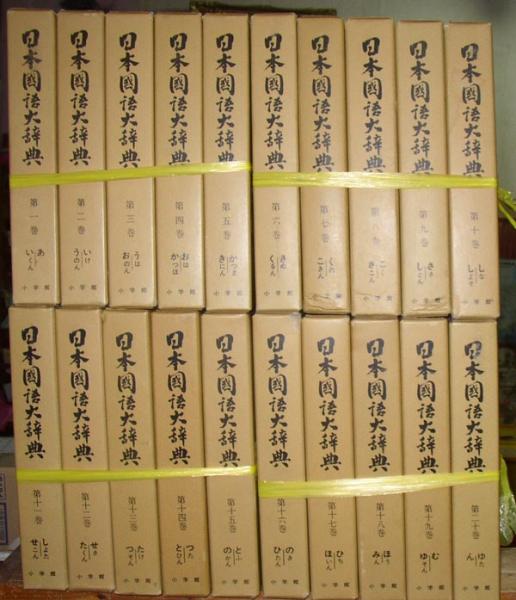 日本國語大辞典
第一巻
あ
いくん
小学館
日本國語大辞典
第二巻
いけ
うのん
小学館
日本國語大辞典
第三巻
うは
おのん
小学館
日本國語大辞典
第四巻
おは
かつほ
小学館
日本國語大辞典
第五巻
かつま
きにん
小学館
日本國語大辞典
第六巻
きぬ
くるん
小学館
日本國語大辞典
第七巻
くの
こきん
小学館
日本國語大辞典
第八巻
小学館
日本國語大辞典
第九巻
さこ
しよん
小学館
日本國語大辞典
第十巻
しな
しよそ
小学館
日本國語大辞典
第十一巻
しよた
せこん
小学館
日本國語大辞典
第十二巻
せさ
たくん
小学館
日本國語大辞典
第十三巻
たけ
つそん
小学館
日本國語大辞典
第十四巻
つた
とひん
小学館
日本國語大辞典
第十五巻
とふ
のかん
小学館
日本國語大辞典
第十六巻
のき
ひたん
小学館
日本國語大辞典
第十七巻
ひち
ほいん
小学館
日本國語大辞典
第十八巻
ほう
みん
小学館
日本國語大辞典
第十九巻
む
ゆそん
小学館
日本國語大辞典
第二十巻
ゆた
ん
小学館